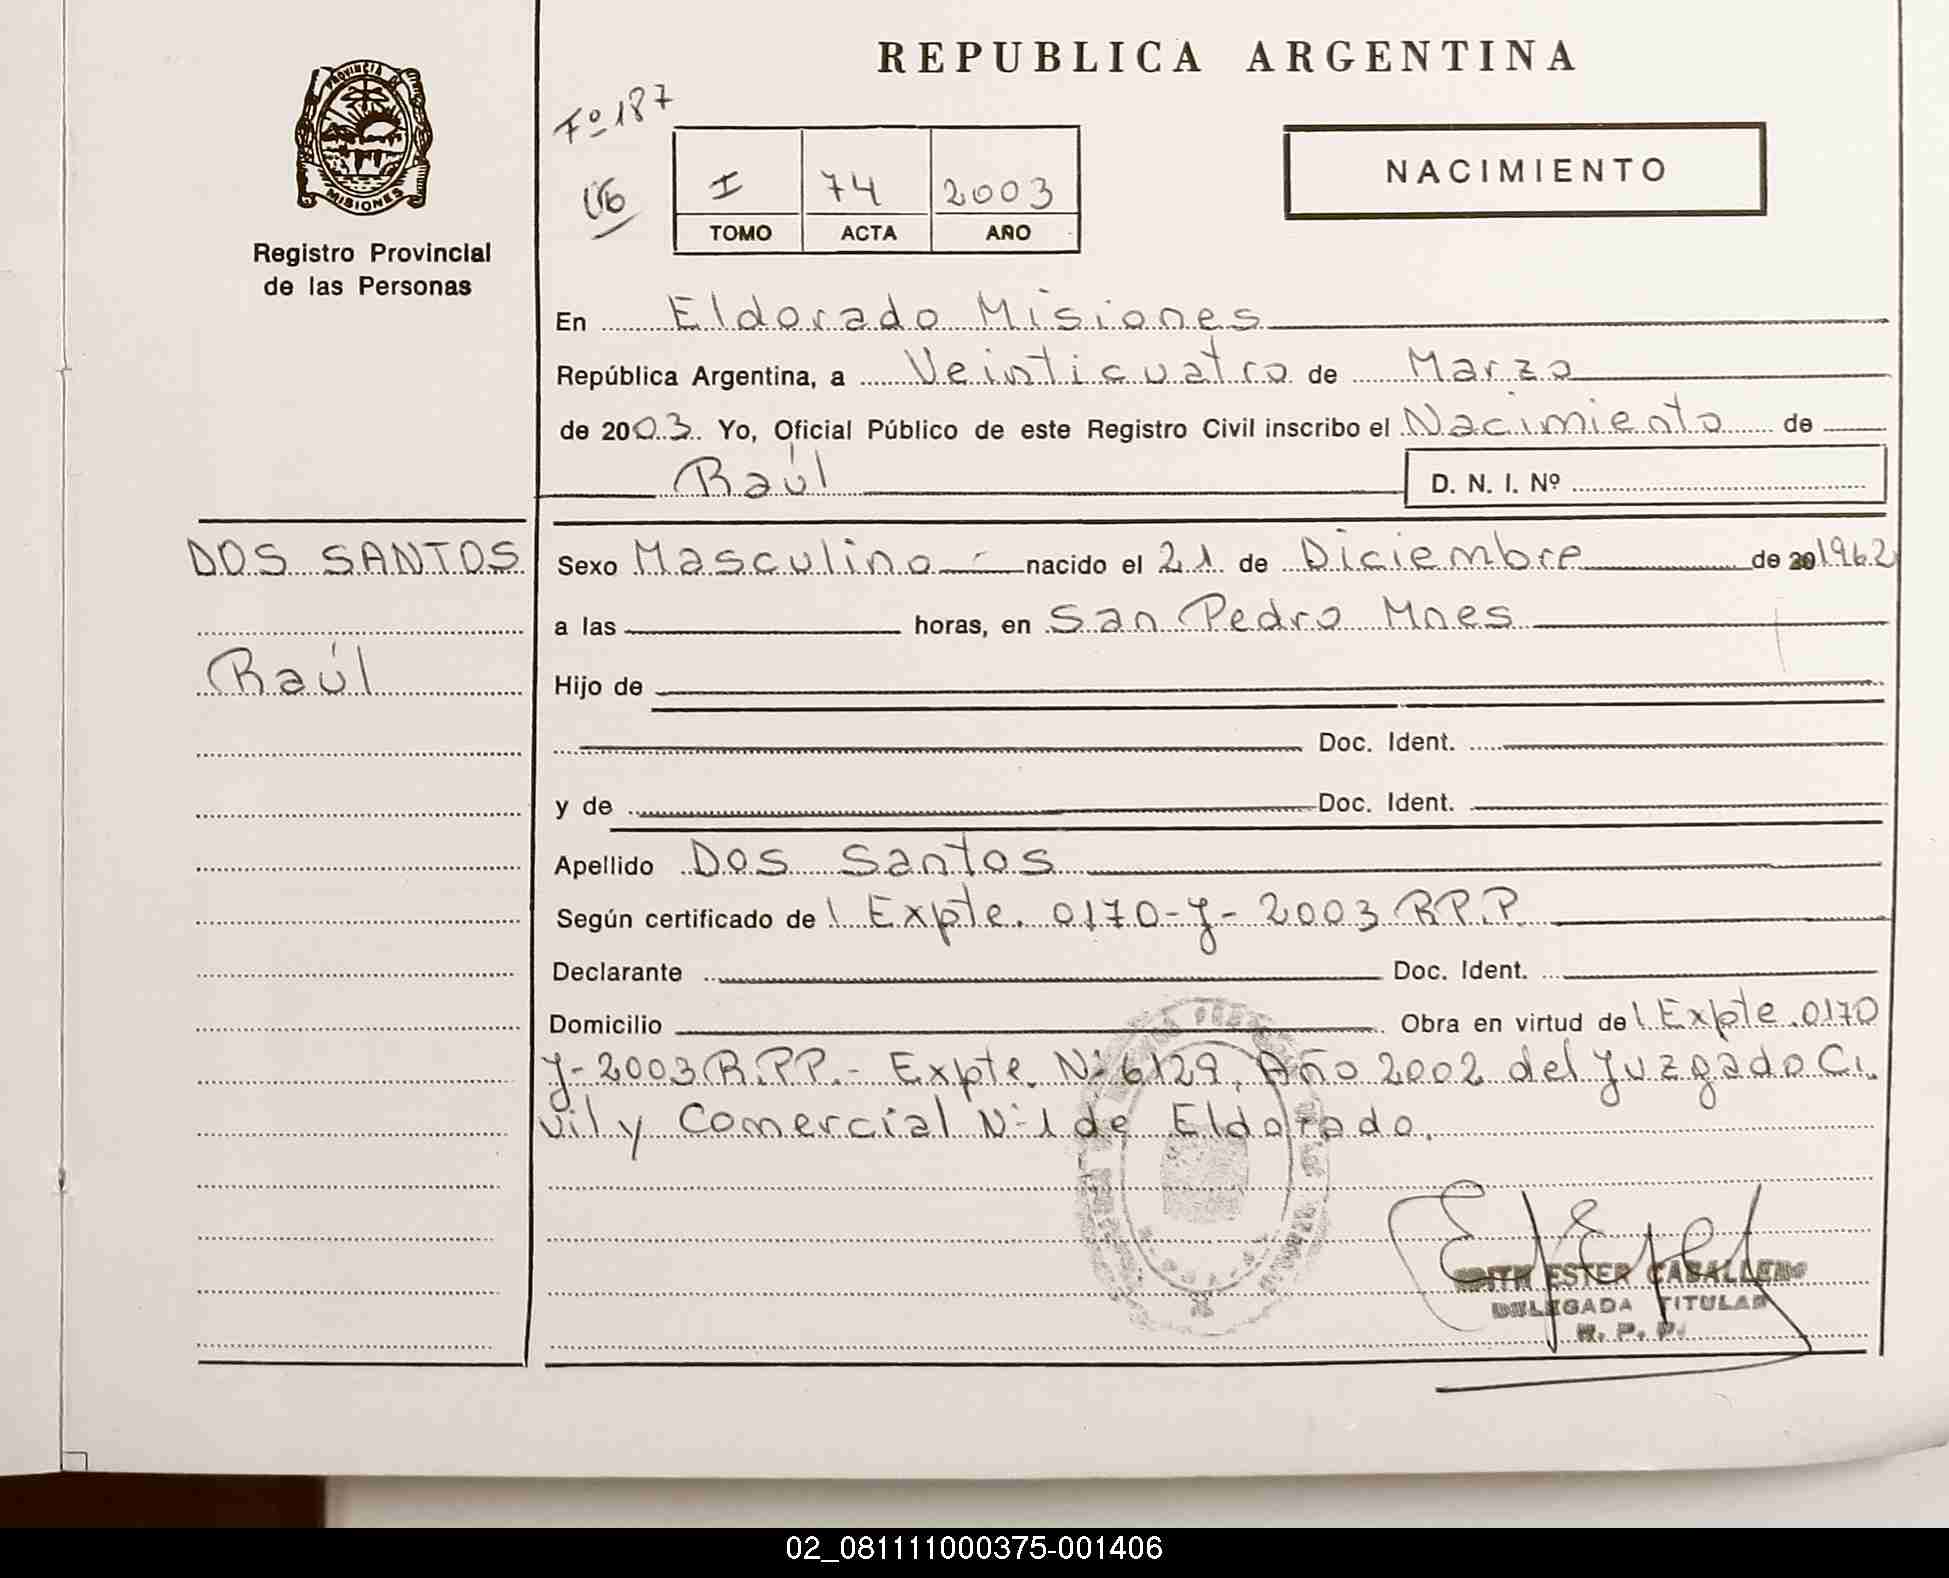 REPUBLICA ARGENTINA
PROVINCIA
MISIONES
Registro Provincial
de las Personas
Fº 187
I 74 2003
TOMO ACTA AÑO
NACIMIENTO
En Eldorado Misiones
República Argentina, a Veinticuatro de Marzo
de 2003. Yo, Oficial Público de este Registro Civil inscribo el Nacimiento de
Raúl D. N. I. Nº
DOS SANTOS
Raúl
Sexo Masculino - nacido el 21 de Diciembre de 20 1962
a las horas, en San Pedro Mnes
Hijo de
Doc. Ident.
y de Doc. Ident.
Apellido Dos Santos
Según certificado de l Expte. 0170-J-2003 R.P.P
Declarante Doc. Ident.
Domicilio Obra en virtud del Expte. 0170
J-2003 R.P.P.- Expte. Nº 6129, Año 2002 del Juzgado Ci
vil y Comercial Nº 1 de Eldorado.
EDITH ESTER CABALLERO
DELEGADA TITULAR
R. P. P.
02_081111000375-001406